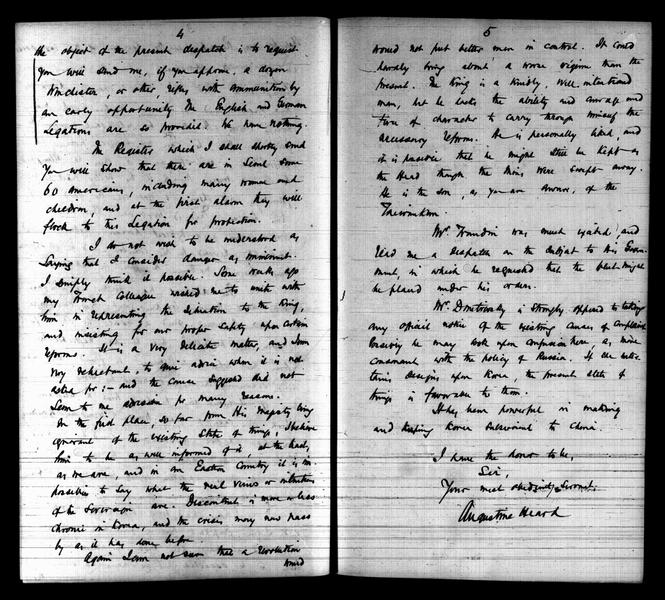 4
the object of the present despatch is to request
you will send me, if you approve, a dozen
Winchester, or other, rifles, with ammunition by
an early opportunity. The English and German
Legations are so provided. We have nothing.
The Register which I shall shortly send
you will show that there are in Seoul some
60 Americans, including many women and
children, and at the first alarm they will
flock to this Legation for protection.
I do not wish to be understood as
saying that I consider danger as imminent.
I simply think it possible. Some weeks ago
my French Colleague wished me to unite with
him in representing the situation to the King,
and insisting for our proper safety upon certain
reforms. It is a very delicate matter, and I am
very reluctant, to give advice when it is not
asked for; — and the course suggested did not
seem to me advisable for many reasons.
In the first place, so far from His Majesty being
ignorant of the existing state of things, I believe
him to be as well informed of it, at the least,
as we are, and in an Eastern Country it is im-
possible to say what the real views or intentions
of the Sovereign are. Discontent is more or less
chronic in Korea, and the crisis may now pass
by as it has done before.
Again I am not sure that a revolution
would
5
would not put better men in control. It could
hardly bring about a worse régime than the
present. The King is a kindly, well intentioned
man, but he lacks the ability and courage and
force of character to carry through himself the
necessary reforms. He is personally liked, and
it is possible that he might still be kept as
the Head though the Mins were swept away.
He is the son, as you are aware, of the
Taiwonkun.
Mr. Frandin was much excited, and
read me a despatch on the subject to his Govern-
ment, in which he requested that the fleet might
be placed under his orders.
Mr. Dmitrevsky is strongly opposed to taking
any official notice of the existing causes of complaint.
Possibly he may look upon confusion here, as more
consonant with the policy of Russia. If she enter-
tains designs upon Korea the present state of
things is favorable to them.
It has been powerful in making
and keeping Korea subservient to China.
I have the honor to be,
Sir,
Your most obedient Servant,
Augustine Heard